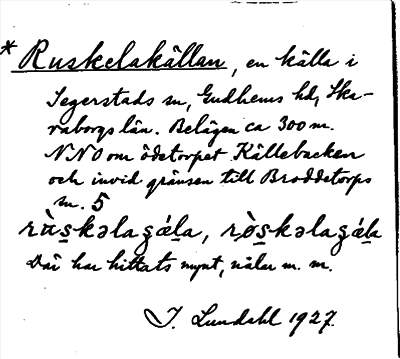 * Ruskelakällan, en källa i
Segerstads sn, Gudhems hd, Ska-
raborgs län. Belägen ca 300 m.
NNO om ödetorpet Källebacken
och invid gränsen till Broddetorps
sn. 5
rùskəlaʒǽla, ròskəlaʒǽla
Där har hittats mynt, nålar m. m.
I. Lundahl 1927.